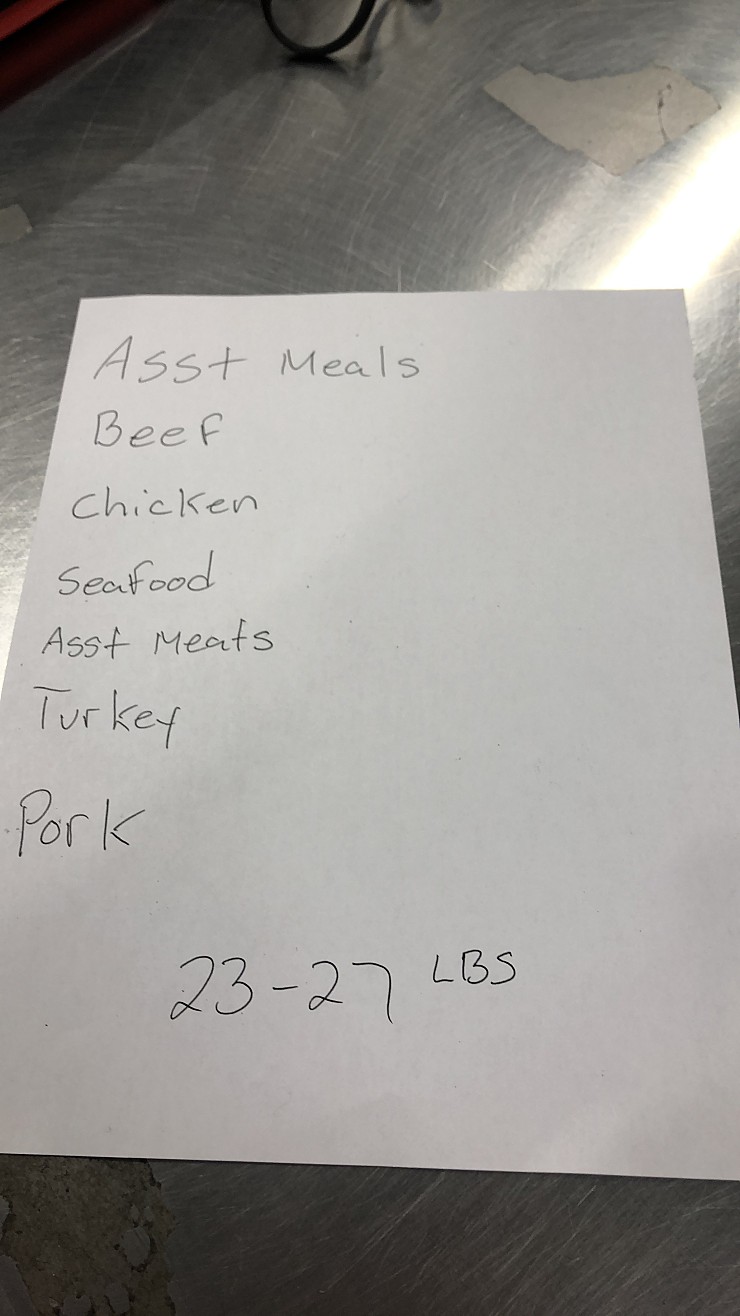 Asst Meals
Beef
Chicken
Seafood
Asst Meats
Turkey
Pork
23-27 LBS